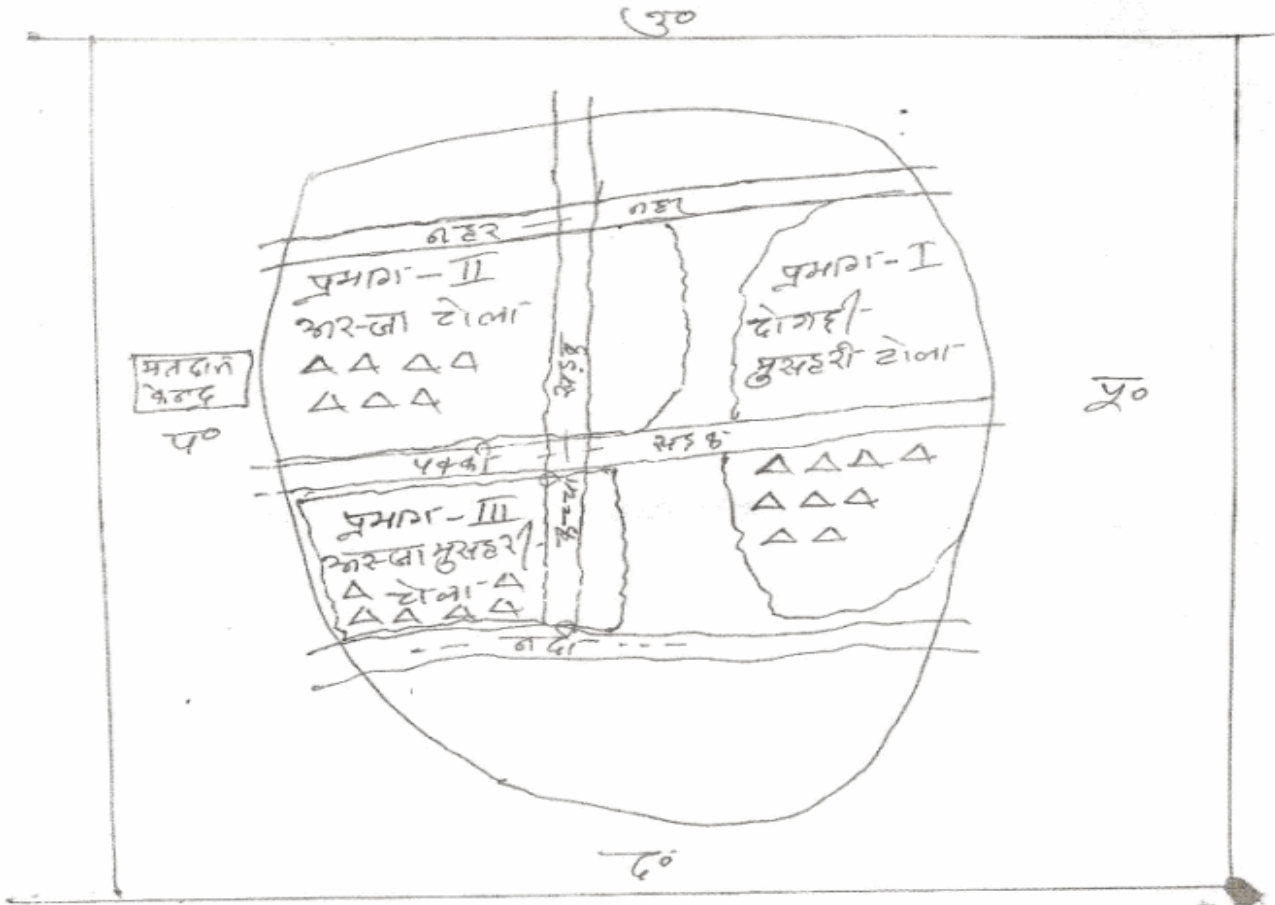 उ०
नहर
नहर
प्रभाग - II
अरन्जा टोला
प्रभाग - I
दोगही
मुसहरी टोला
मतदान
केन्द्र
प०
पू०
सड़क
पक्की
सड़क
कच्ची
प्रभाग - III
अरन्जा मुसहरी
टोला
नदी
द०